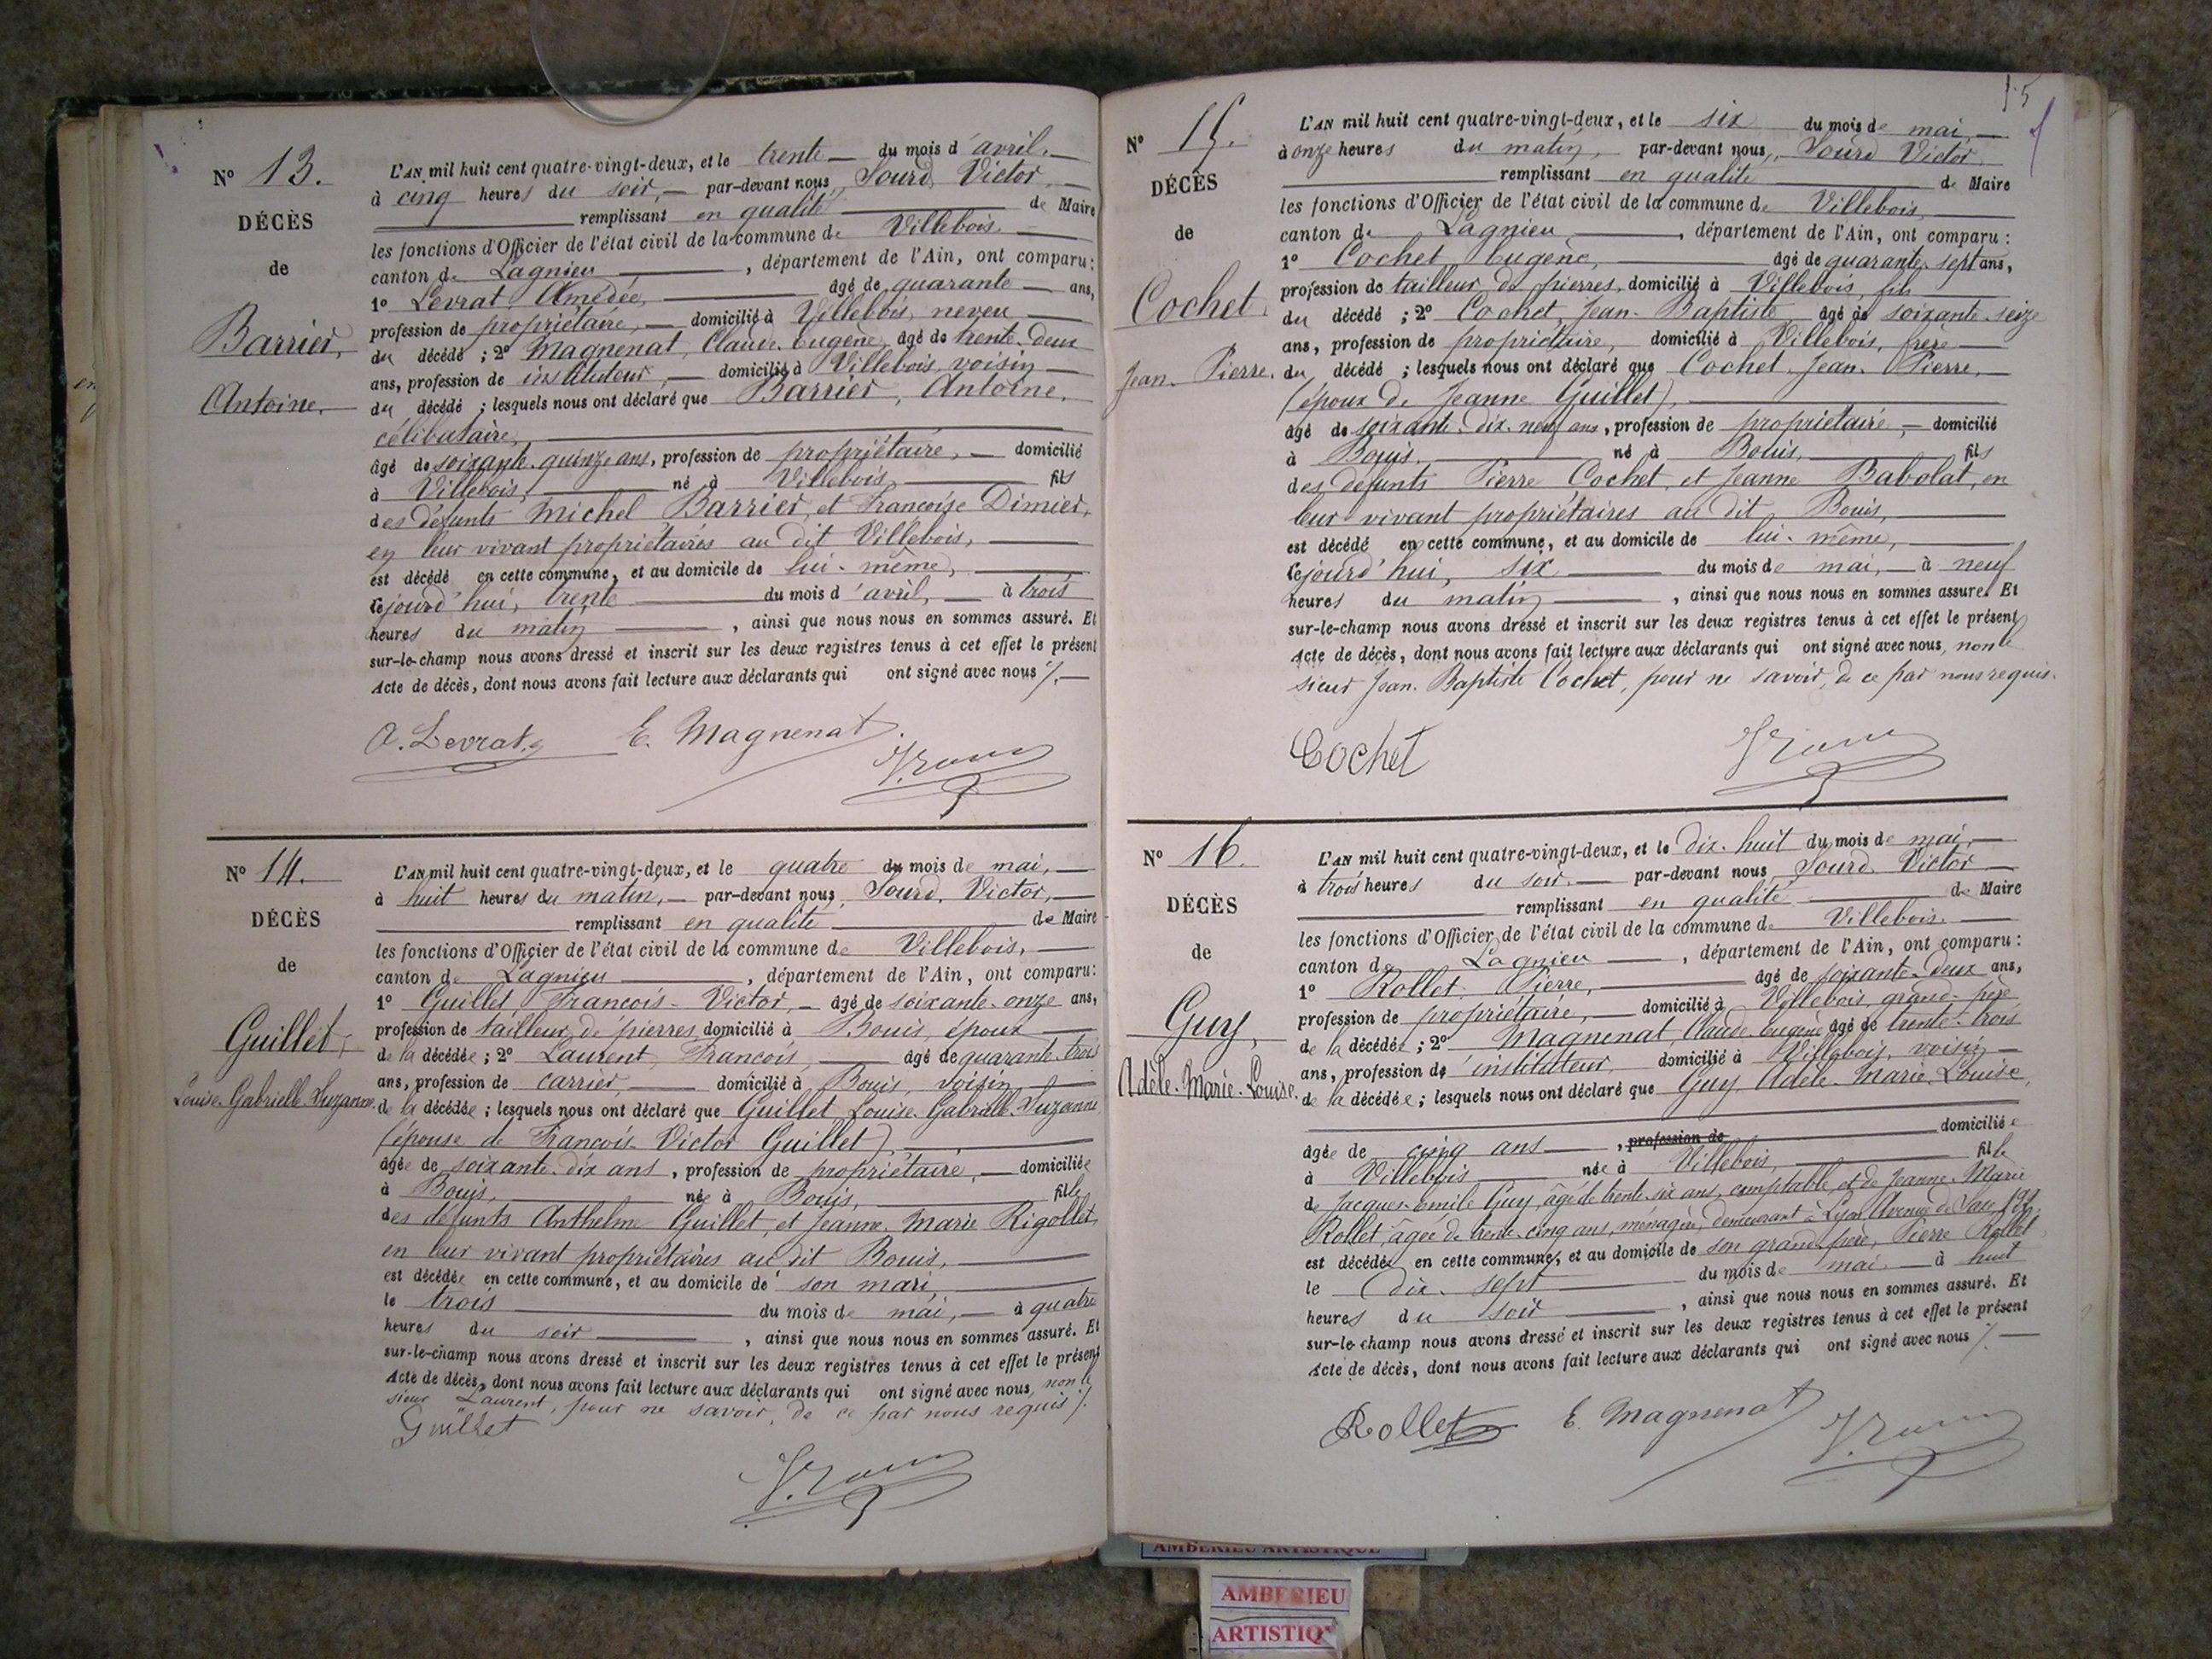 N° 13.
DÉCÈS
de
Barrier,
Antoine.
L'AN mil huit cent quatre-vingt-deux, et le trente du mois d'avril.
à cinq heures du soir, par-devant nous, Sourd, Victor,
remplissant en qualité de Maire
les fonctions d'Officier de l'état civil de la commune de Villebois.
canton de Lagnieu, département de l'Ain, ont comparu:
1° Levrat, Amédée, âgé de quarante ans,
profession de propriétaire, domicilié à Villebois, neveu
du décédé; 2° Magnenat, Claude-Eugène, âgé de trente-deux
ans, profession de instituteur, domicilié à Villebois, voisin
du décédé; lesquels nous ont déclaré que Barrier, Antoine,
célibataire,
âgé de soixante-quinze ans, profession de propriétaire, domicilié
à Villebois, né à Villebois, fils
des défunts Michel Barrier, et Françoise Dimier,
en leur vivant propriétaires au dit Villebois,
est décédé en cette commune, et au domicile de lui-même,
cejourd'hui, trente du mois d'avril, à trois
heures du matin, ainsi que nous nous en sommes assuré. Et
sur-le-champ nous avons dressé et inscrit sur les deux registres tenus à cet effet le présent
Acte de décès, dont nous avons fait lecture aux déclarants qui ont signé avec nous ./.
A. Levrat E. Magnenat
N° 14.
DÉCÈS
de
Guillet,
Louise-Gabrielle-Suzanne.
L'AN mil huit cent quatre-vingt-deux, et le quatre du mois de mai,
à huit heures du matin, par-devant nous, Sourd, Victor,
remplissant en qualité de Maire
les fonctions d'Officier de l'état civil de la commune de Villebois,
canton de Lagnieu, département de l'Ain, ont comparu:
1° Guillet, François-Victor, âgé de soixante-onze ans,
profession de tailleur de pierres, domicilié à Bouis, époux
de la décédée; 2° Laurent, François, âgé de quarante-trois
ans, profession de carrier, domicilié à Bouis, voisin
de la décédée; lesquels nous ont déclaré que Guillet Louise-Gabrielle-Suzanne
(épouse de François-Victor Guillet),
âgée de soixante-dix ans, profession de propriétaire, domiciliée
à Bouis, née à Bouis, fille
des défunts Anthelme Guillet, et Jeanne-Marie Rigollet,
en leur vivant propriétaires au dit Bouis,
est décédée en cette commune, et au domicile de son mari,
le trois du mois de mai, à quatre
heures du soir, ainsi que nous nous en sommes assuré. Et
sur-le-champ nous avons dressé et inscrit sur les deux registres tenus à cet effet le présent
Acte de décès, dont nous avons fait lecture aux déclarants qui ont signé avec nous, non le
sieur Laurent, pour ne savoir, de ce par nous requis ./.
Guillet
N° 15.
DÉCÈS
de
Cochet,
Jean-Pierre.
L'AN mil huit cent quatre-vingt-deux, et le six du mois de mai,
à onze heures du matin, par-devant nous, Sourd Victor,
remplissant en qualité de Maire
les fonctions d'Officier de l'état civil de la commune de Villebois,
canton de Lagnieu, département de l'Ain, ont comparu:
1° Cochet, Eugène, âgé de quarante-sept ans,
profession de tailleur de pierres, domicilié à Villebois, fils
du décédé; 2° Cochet, Jean-Baptiste, âgé de soixante-seize
ans, profession de propriétaire, domicilié à Villebois, frère
du décédé; lesquels nous ont déclaré que Cochet, Jean-Pierre,
(époux de Jeanne Guillet),
âgé de soixante-dix-neuf ans, profession de propriétaire, domicilié
à Bouis, né à Bouis, fils
des défunts Pierre Cochet, et Jeanne Babolat, en
leur vivant propriétaires au dit Bouis,
est décédé en cette commune, et au domicile de lui-même,
cejourd'hui, six du mois de mai, à neuf
heures du matin, ainsi que nous nous en sommes assuré. Et
sur-le-champ nous avons dressé et inscrit sur les deux registres tenus à cet effet le présent
Acte de décès, dont nous avons fait lecture aux déclarants qui ont signé avec nous, non le
sieur Jean-Baptiste Cochet, pour ne savoir, de ce par nous requis.
Cochet
N° 16.
DÉCÈS
de
Guy,
Adèle-Marie-Louise.
L'AN mil huit cent quatre-vingt-deux, et le dix-huit du mois de mai,
à trois heures du soir, par-devant nous Sourd, Victor
remplissant en qualité de Maire
les fonctions d'Officier de l'état civil de la commune de Villebois.
canton de Lagnieu, département de l'Ain, ont comparu:
1° Rollet, Pierre, âgé de soixante-deux ans,
profession de propriétaire, domicilié à Villebois, grand-père
de la décédée; 2° Magnenat, Claude-Eugène âgé de trente-trois
ans, profession d'instituteur, domicilié à Villebois, voisin
de la décédée; lesquels nous ont déclaré que Guy Adèle-Marie-Louise,
âgée de cinq ans, profession de domiciliée
à Villebois née à Villebois, fille
de Jacques-Emile Guy, âgé de trente-six ans, comptable, et de Jeanne-Marie
Rollet, âgée de trente-cinq ans, ménagère, demeurant à Lyon, Avenue de Saxe,
est décédée en cette commune, et au domicile de son grand-père, Pierre Rollet
le dix-sept du mois de mai, à huit
heures du soir, ainsi que nous nous en sommes assuré. Et
sur-le-champ nous avons dressé et inscrit sur les deux registres tenus à cet effet le présent
Acte de décès, dont nous avons fait lecture aux déclarants qui ont signé avec nous ./.
Rollet E. Magnenat
AMBERIEU ARTISTIQUE
AMBERIEU
ARTISTIQ